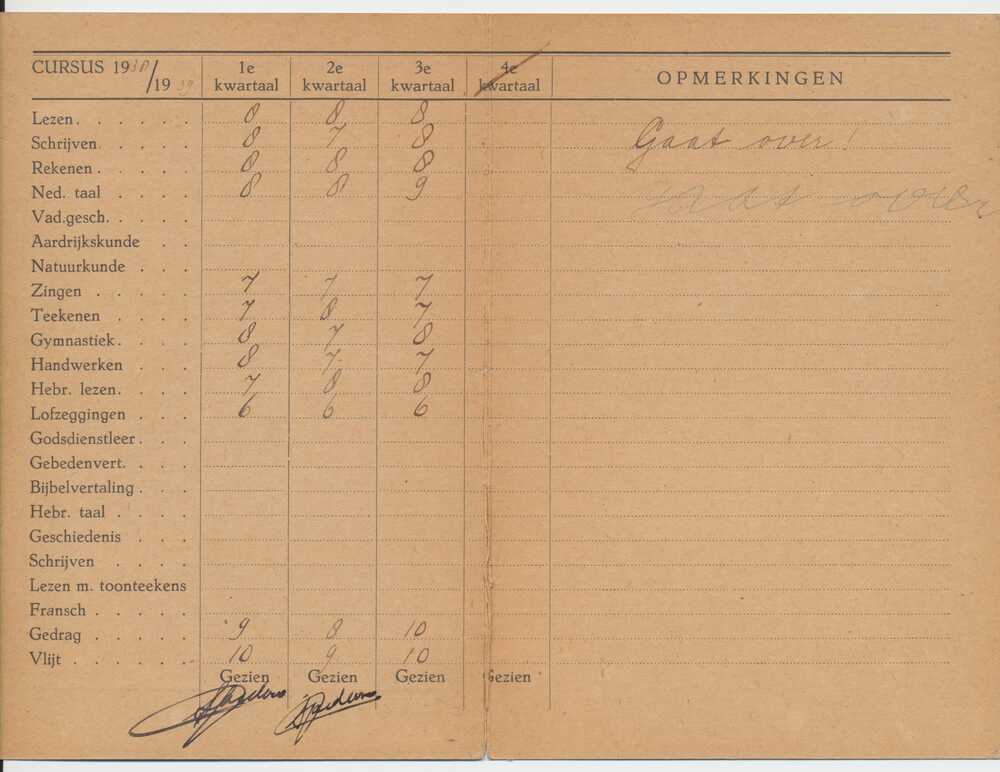 CURSUS 1938/1939 1e kwartaal 2e kwartaal 3e kwartaal 4e kwartaal OPMERKINGEN
Lezen. . . . . . 8 8 8
Schrijven. . . . . 8 7 8 Gaat over!
Rekenen . . . . . 8 8 8
Ned. taal . . . . 8 8 9
Vad.gesch. . . . .
Aardrijkskunde . .
Natuurkunde . . .
Zingen . . . . . 7 7 7
Teekenen . . . . 7 8 7
Gymnastiek. . . . 8 7 8
Handwerken . . . 8 7 7
Hebr. lezen. . . . 7 8 8
Lofzeggingen . . . 6 6 6
Godsdienstleer . . .
Gebedenvert. . . .
Bijbelvertaling . . .
Hebr. taal . . . .
Geschiedenis . . .
Schrijven . . . .
Lezen m. toonteekens
Fransch . . . . .
Gedrag . . . . . 9 8 10
Vlijt . . . . . . 10 9 10
Gezien Gezien Gezien Gezien